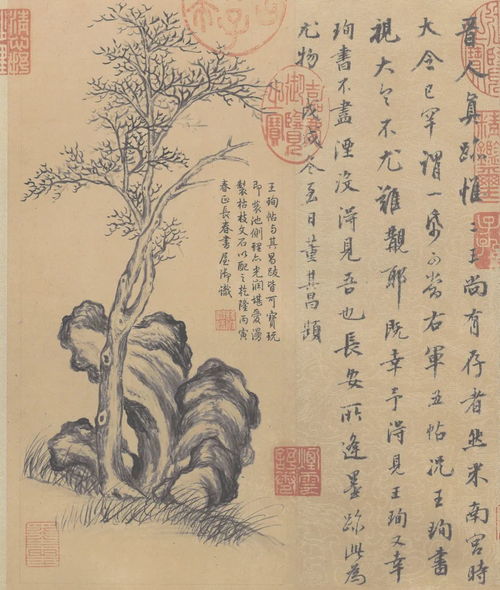 晉人真跡惟二王尚有存者然米南宮時
大令已罕謂一帋可當右軍五帖況王珣書
視大令不尤難覯耶既幸予得見王珣又幸
珣書不盡湮沒得見吾也長安所逢墨跡此為
尤物戊戌冬至日董其昌題
王珣帖与其昌跋皆可寶玩
即裝池側理亦光潤堪愛漫
製枯枝文石以配之乾隆丙寅
春正長春書屋御識
嘉慶御覽之寶